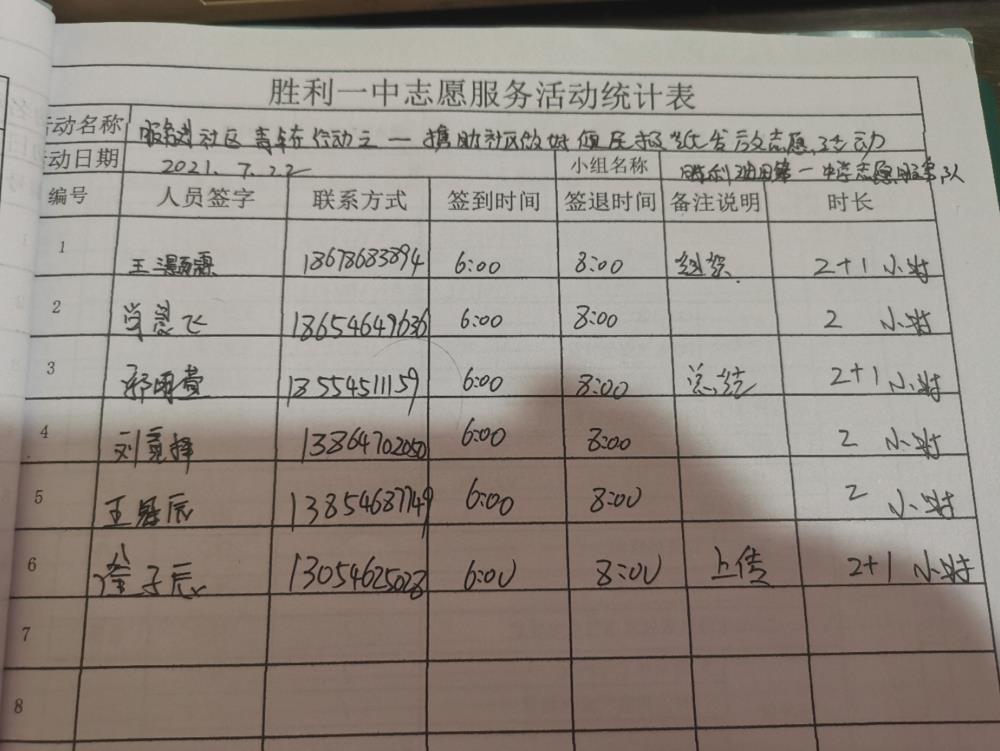 胜利一中志愿服务活动统计表
活动名称 社区 行动之一 携助社区做好便民 发放志愿活动
活动日期 2021.7.22 小组名称 胜利油田第一中学志愿服务队
编号 人员签字 联系方式 签到时间 签退时间 备注说明 时长
1 王灏霖 18678683894 6:00 8:00 组织 2+1 小时
2 飞 18654649636 6:00 8:00 2 小时
3 18554511159 6:00 8:00 总结 2+1 小时
4 刘竟择 13864702050 6:00 8:00 2 小时
5 王冠辰 13854687749 6:00 8:00 2 小时
6 子辰 13054625028 6:00 8:00 上传 2+1 小时
7
8